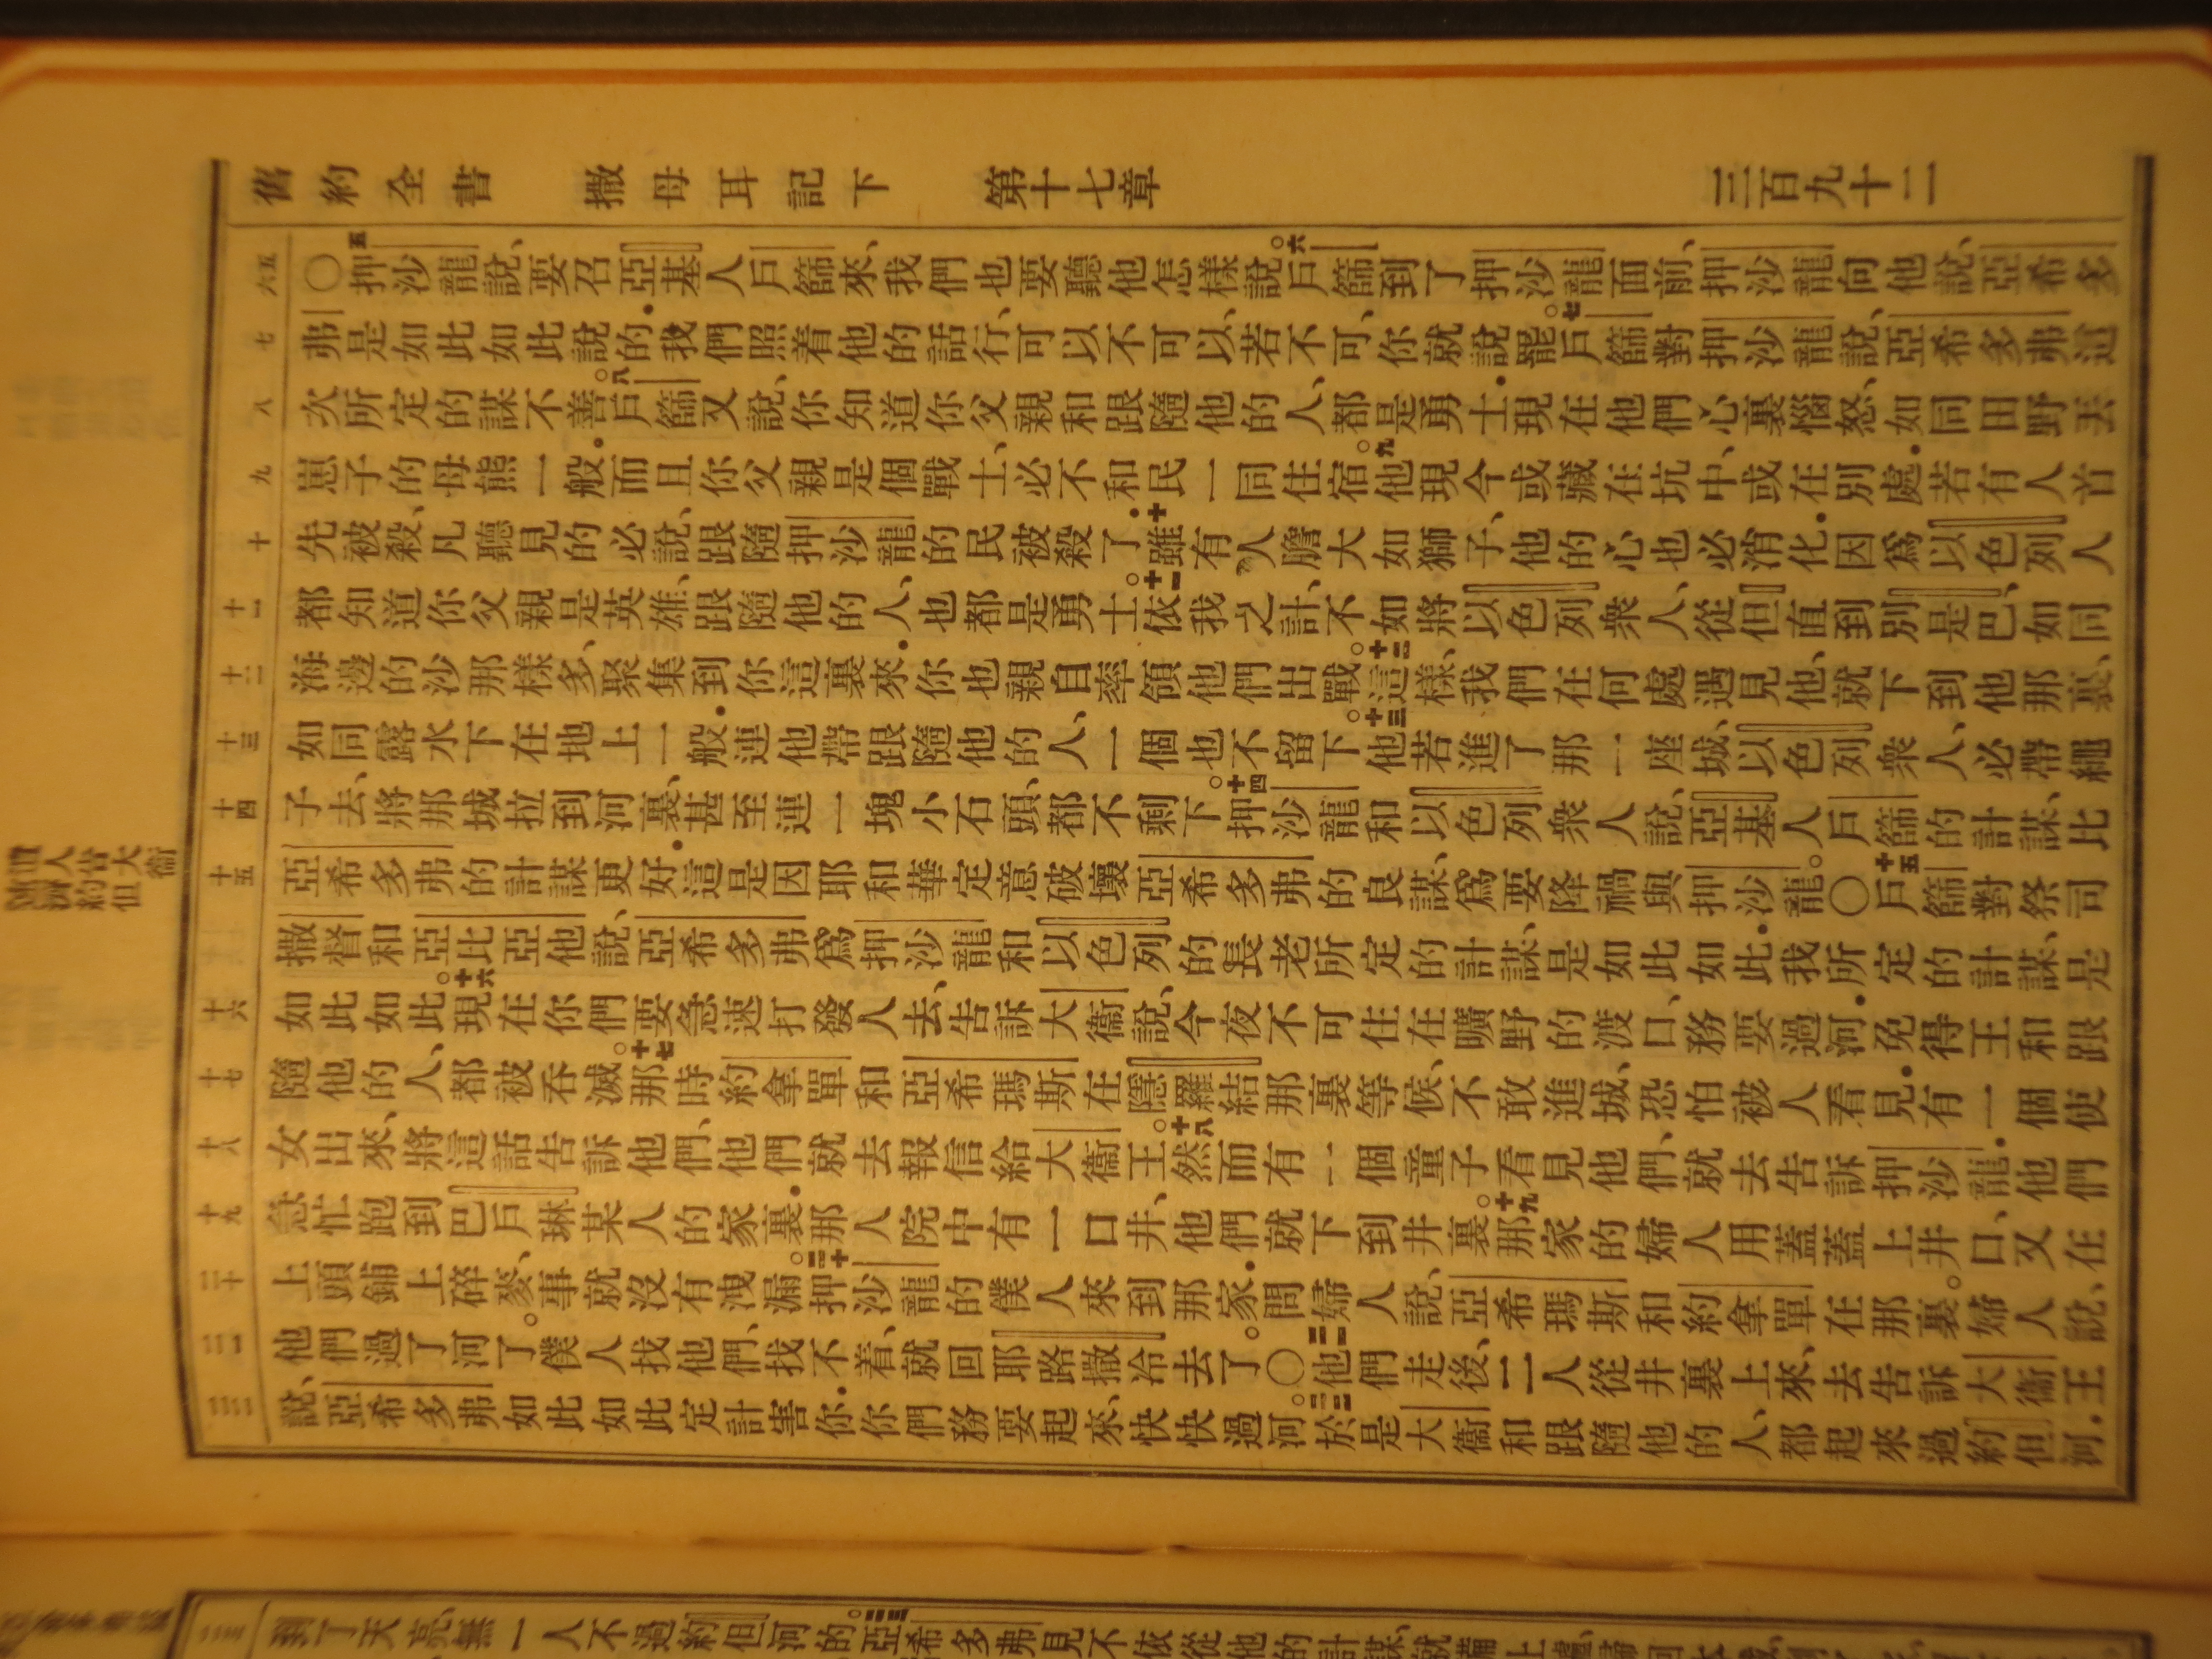 舊約全書 撒母耳記下 第十七章 三百九十二
六五 七 八 九 十 十一 十二 十三 十四 十五 十六 十七 十八 十九 二十 二一 二二
〇五押沙龍說、要召亞基人戶篩來、我們也要聽他怎樣說。六戶篩到了押沙龍面前、押沙龍向他說、亞希多
弗是如此如此說的．我們照着他的話行、可以不可以、若不可、你就說罷。七戶篩對押沙龍說、亞希多弗這
次所定的謀不善。八戶篩又說、你知道你父親和跟隨他的人、都是勇士．現在他們心裏惱怒、如同田野丟
崽子的母熊一般．而且你父親是個戰士、必不和民一同住宿。九他現今或藏在坑中、或在別處．若有人首
先被殺、凡聽見的必說、跟隨押沙龍的民被殺了．十雖有人膽大如獅子、他的心也必消化．因爲以色列人
都知道你父親是英雄、跟隨他的人、也都是勇士。十一依我之計、不如將以色列衆人、從但直到別是巴、如同
海邊的沙那樣多、聚集到你這裏來．你也親自率領他們出戰。十二這樣、我們在何處遇見他、就下到他那裏、
如同露水下在地上一般．連他帶跟隨他的人、一個也不留下。十三他若進了那一座城、以色列衆人、必帶繩
子去、將那城拉到河裏、甚至連一塊小石頭、都不剩下。十四押沙龍和以色列衆人說、亞基人戶篩的計謀、比
亞希多弗的計謀更好．這是因耶和華定意破壞亞希多弗的良謀、爲要降禍與押沙龍。〇十五戶篩對祭司
撒督和亞比亞他說、亞希多弗爲押沙龍和以色列的長老所定的計謀、是如此如此．我所定的計謀、是
如此如此。十六現在你們要急速打發人去、告訴大衞說、今夜不可住在曠野的渡口、務要過河．免得王和跟
隨他的人、都被吞滅。十七那時約拿單和亞希瑪斯在隱羅結那裏等候、不敢進城、恐怕被人看見．有一個使
女出來、將這話告訴他們、他們就去報信給大衞王。十八然而有一個童子看見他們、就去告訴押沙龍．他們
急忙跑到巴戶琳某人的家裏．那人院中有一口井、他們就下到井裏。十九那家的婦人用蓋蓋上井口、又在
上頭鋪上碎麥、事就沒有洩漏。二十押沙龍的僕人來到那家．問婦人說、亞希瑪斯和約拿單在那裏。婦人說、
他們過了河了。僕人找他們、找不着、就回耶路撒冷去了。〇二一他們走後、二人從井裏上來、去告訴大衞王
說、亞希多弗如此如此定計害你．你們務要起來、快快過河。二二於是大衞和跟隨他的人、都起來過約但河．
二三
到了天亮、無一人不過約但河的。二三亞希多弗見不依從他的計謀、就備上驢